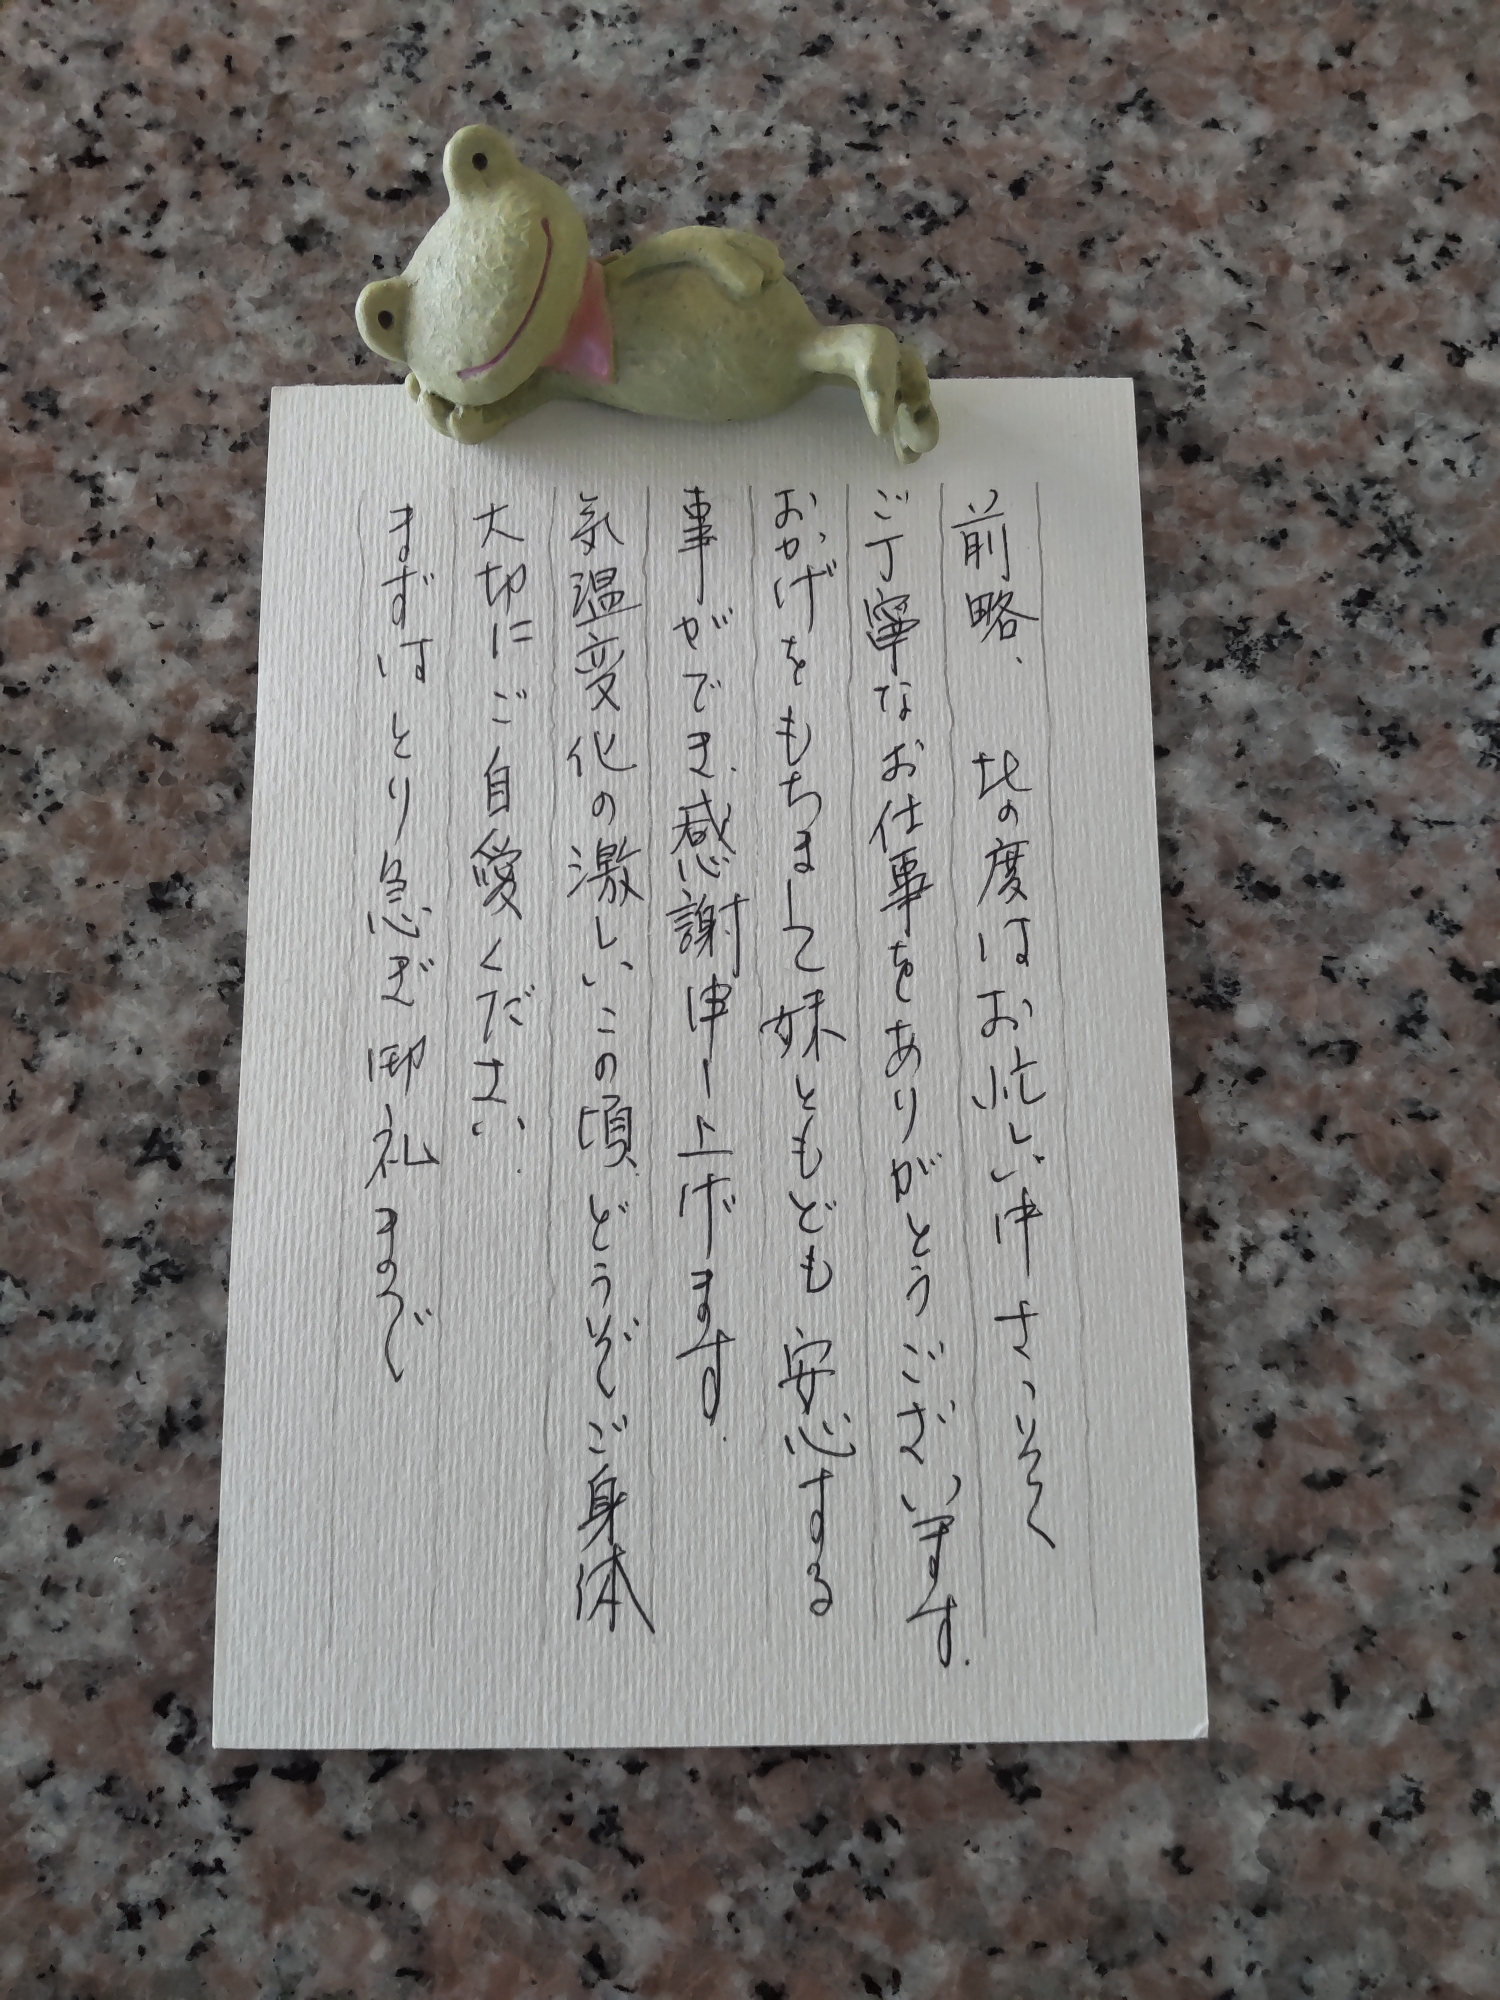 前略、此の度はお忙しい中さっそく
ご丁寧なお仕事をありがとうございます.
おかげをもちまして妹ともども安心する
事ができ、感謝申し上げます.
気温変化の激しいこの頃、どうぞご身体
大切にご自愛ください.
まずはとり急ぎ御礼まで